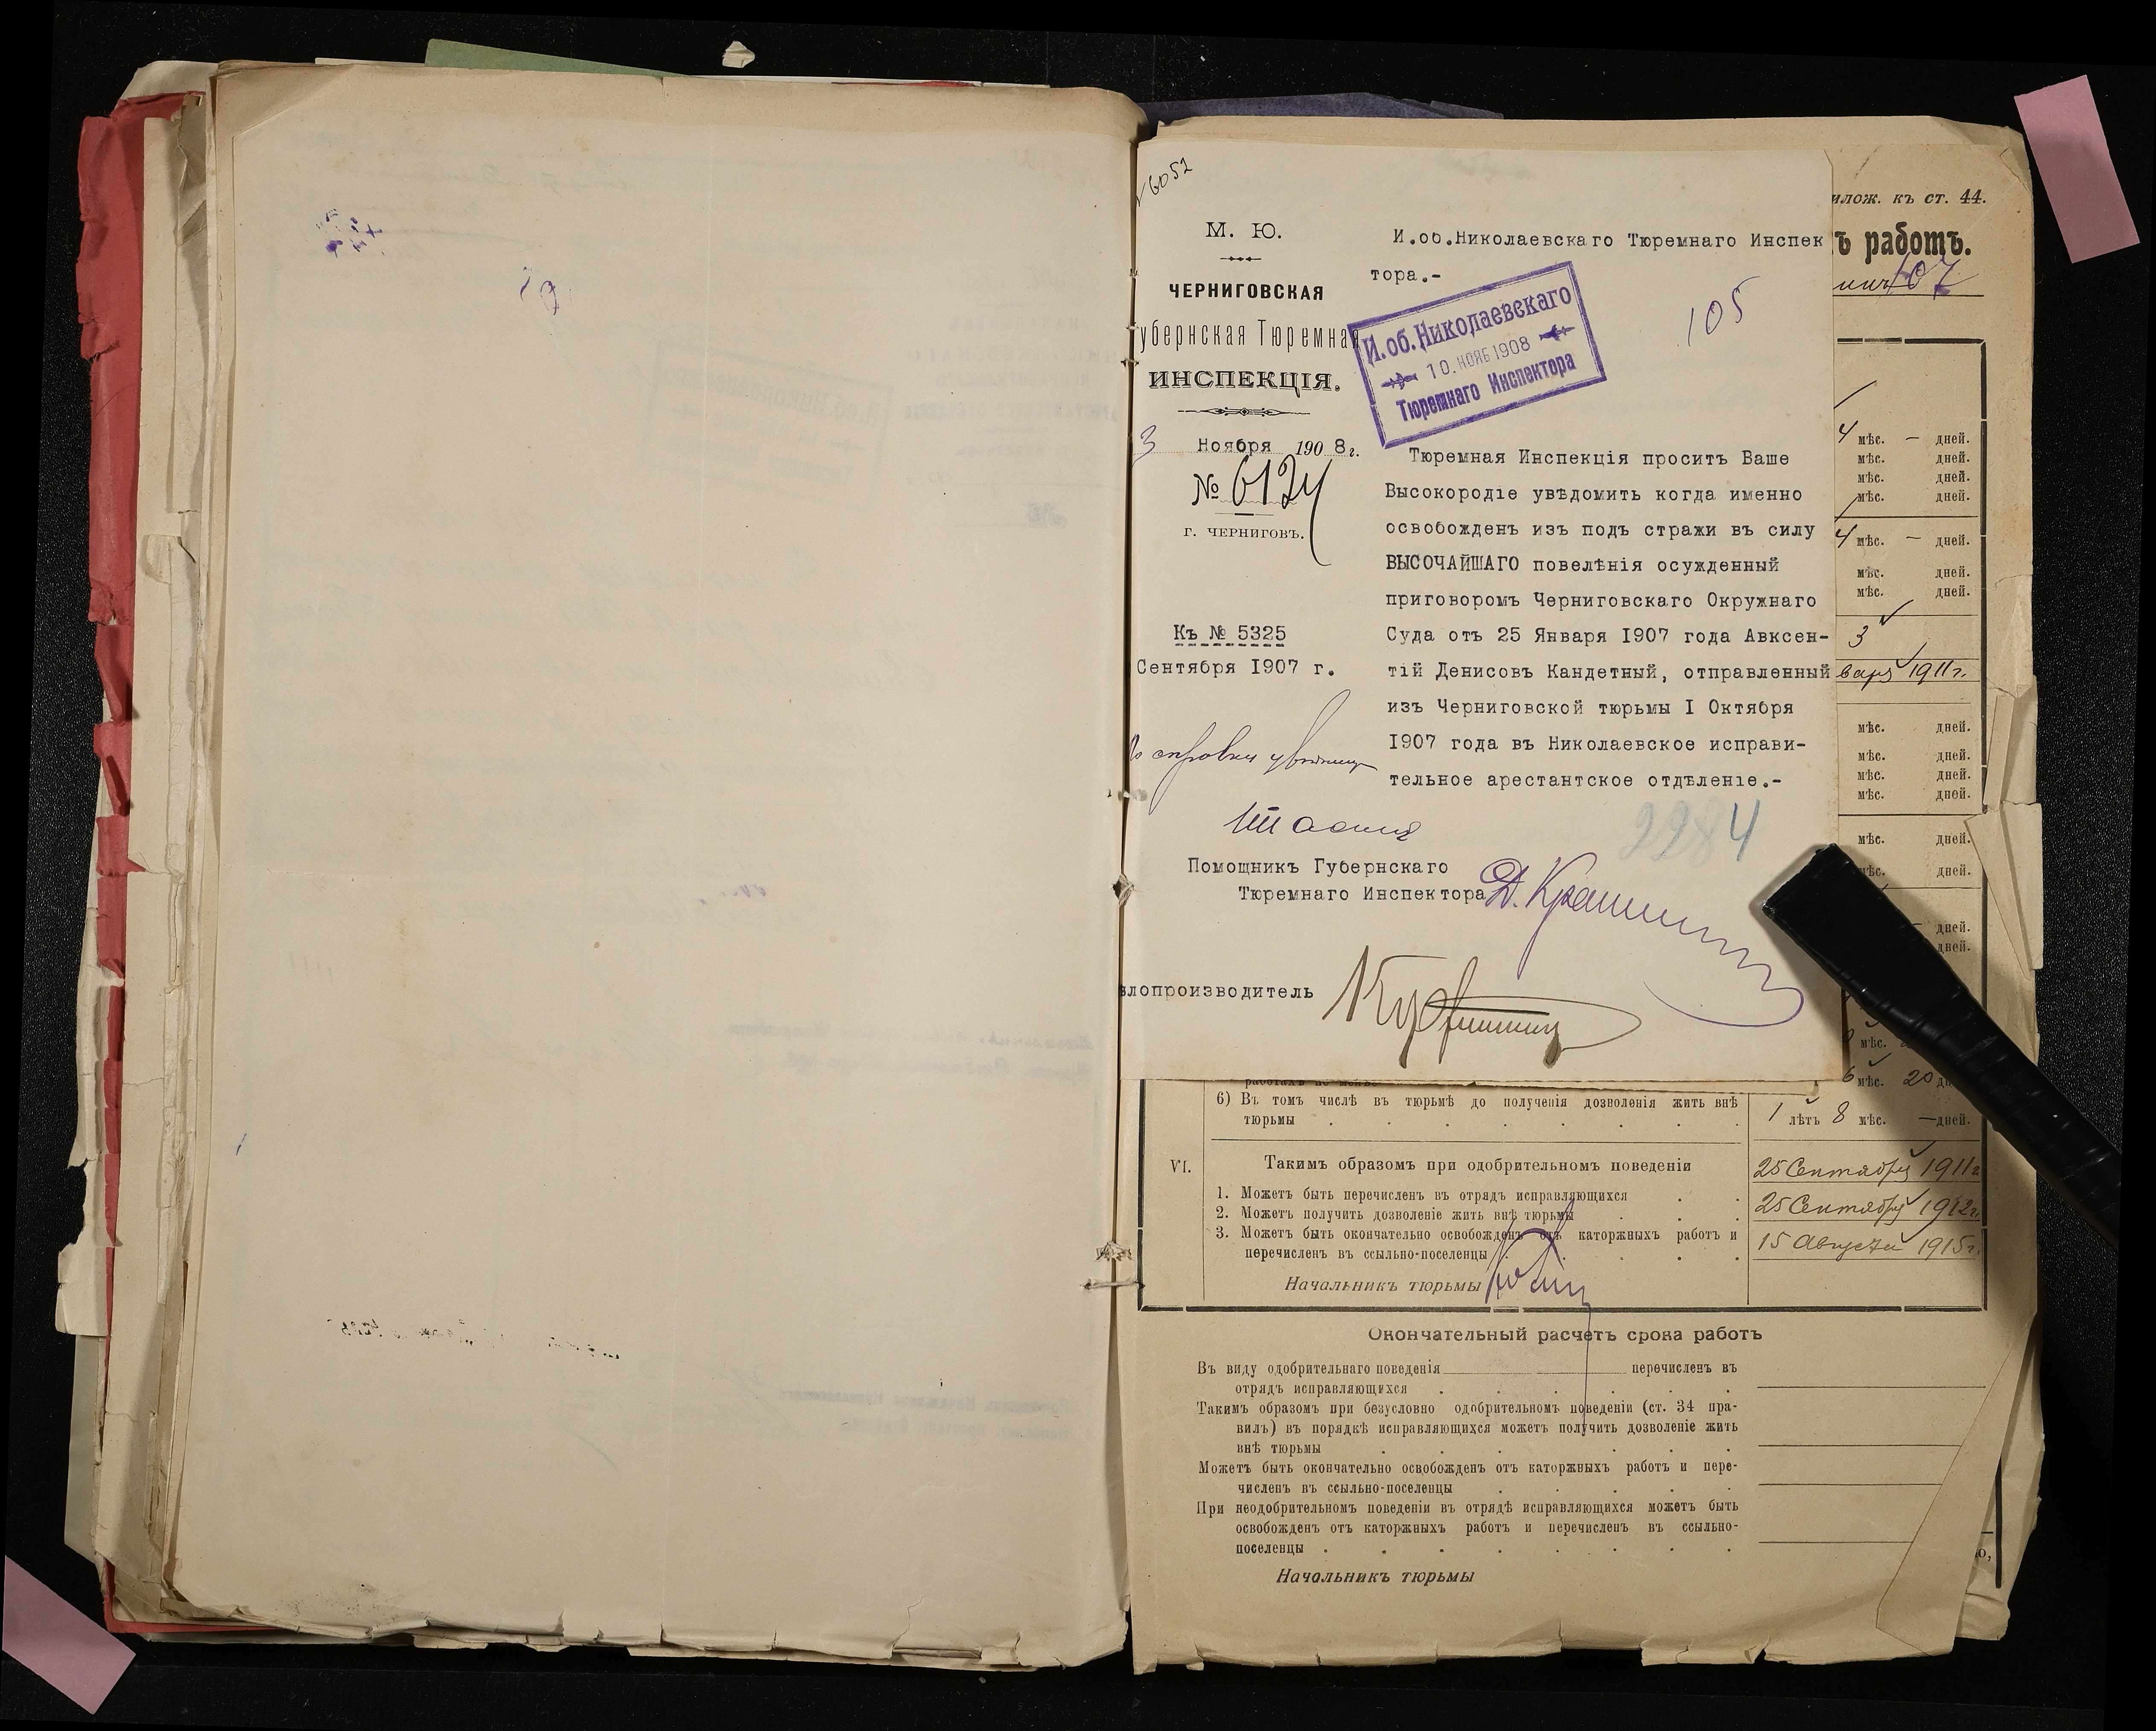 6052
М. Ю.
ЧЕРНИГОВСКАЯ
убернская Тюремная
ИНСПЕКЦІЯ.
3 Ноября 1908 г.
№ 6124
г. ЧЕРНИГОВЪ.
Къ № 5325
Сентября 1907 г.
И.об.Николаевскаго Тюремнаго Инспек
тора.-
105
И.об.Николаевскаго
10.НОЯБ 1908
Тюремнаго Инспектора
Тюремная Инспекція проситъ Ваше
Высокородіе увѣдомить когда именно
освобожденъ изъ подъ стражи въ силу
ВЫСОЧАЙШАГО повелѣнія осужденный
приговоромъ Черниговскаго Окружнаго
Суда отъ 25 Января I907 года Авксен-
тій Денисовъ Кандетный, отправленный
изъ Черниговской тюрьмы I Октября
I907 года въ Николаевское исправи-
тельное арестантское отдѣленіе.-
2284
Помощникъ Губернскаго
Тюремнаго Инспектора
ѣлопроизводитель
илож. къ ст. 44.
ъ работъ.
107
4 мѣс. — дней.
мѣс. дней.
мѣс. дней.
мѣс. дней.
4 мѣс. — дней.
мѣс. дней.
мѣс. дней.
3
варя 1911 г.
мѣс. дней.
мѣс. дней.
мѣс. дней.
мѣс. дней.
мѣс. дней.
мѣс. дней.
дней.
дней.
мѣс.
6 мѣс. 20 д
6) Въ томъ числѣ въ тюрьмѣ до полученія дозволенія жить внѣ
тюрьмы 1 лѣтъ 8 мѣс. — дней.
VI. Такимъ образомъ при одобрительномъ поведеніи
1. Можетъ быть перечисленъ въ отрядъ исправляющихся 25 Сентября 1911 г.
2. Можетъ получить дозволеніе жить внѣ тюрьмы 25 Сентября 1912 г.
3. Можетъ быть окончательно освобожденъ отъ каторжныхъ работъ и
перечисленъ въ ссыльно-поселенцы 15 Августа 1915 г.
Начальникъ тюрьмы
Окончательный расчетъ срока работъ
Въ виду одобрительнаго поведенія перечисленъ въ
отрядъ исправляющихся
Такимъ образомъ при безусловно одобрительномъ поведеніи (ст. 34 пра-
вилъ) въ порядкѣ исправляющихся можетъ получить дозволеніе жить
внѣ тюрьмы
Можетъ быть окончательно освобожденъ отъ каторжныхъ работъ и пере-
численъ въ ссыльно-поселенцы
При неодобрительномъ поведеніи въ отрядѣ исправляющихся можетъ быть
освобожденъ отъ каторжныхъ работъ и перечисленъ въ ссыльно-
поселенцы
Начальникъ тюрьмы